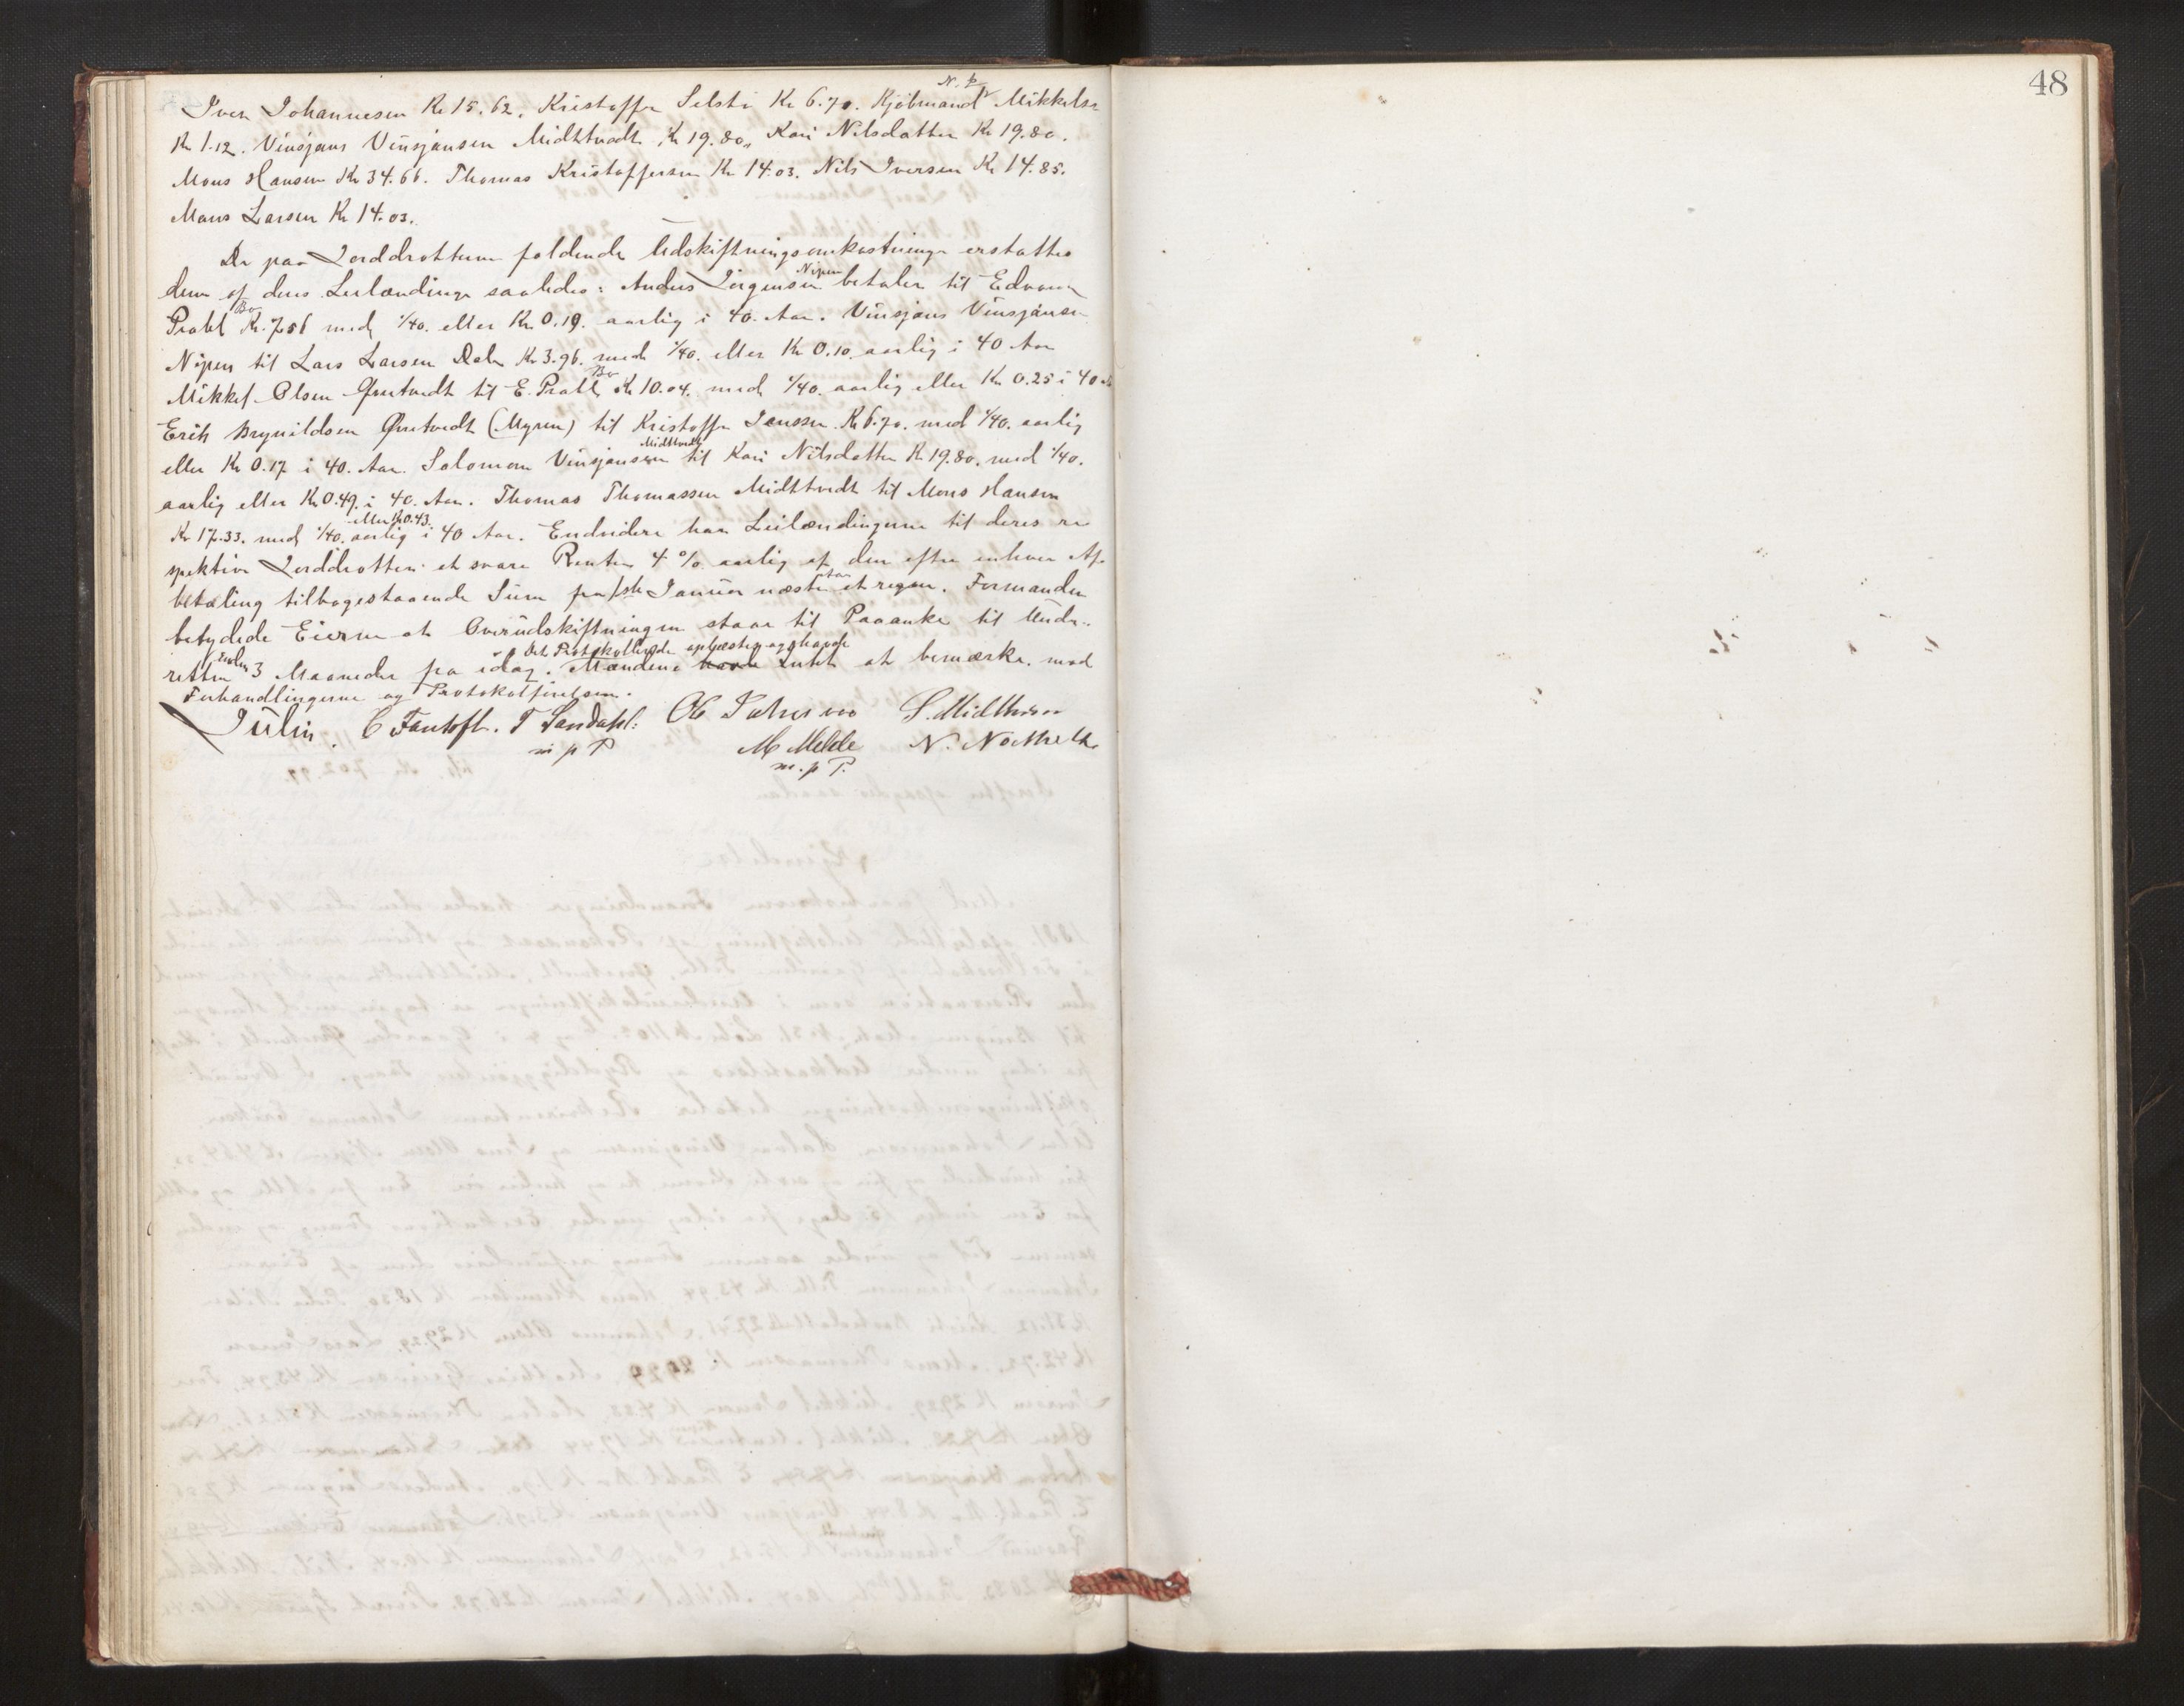 48
Iver Johannesen Kr 15.62. Kristoffer Selstø Kr 6.70. Kjøbmand N. P. Mikkelsen
Kr 1.12. Vinsjans Vinsjansen Midttvedt Kr 19.80, Kari Nilsdatter Kr 19.80.
Mons Hansen Kr 34.66. Thomas Kristoffersen Kr 14.03. Nils Iversen Kr 14.85.
Mons Larsen Kr 14.03.
De paa Jorddrotterne faldende Udskiftningsomkostninger erstattes
dem af deres Leilændinge saaledes: Anders Jørgensen Nipen betaler til Edvard
Prahl Bø Kr. 7.56 med 1/40. eller Kr. 0.19. aarlig i 40. Aar. Vinsjans Vinsjansen
Nipen til Lars Larsen Dale Kr 3.96. med 1/40. eller Kr 0.10. aarlig i 40 Aar
Mikkel Olsen Øvretvedt til E. Prahl Bø Kr 10.04. med 1/40. aarlig eller Kr 0.25 i 40 Aar
Erik Brynildsen Øvretvedt (Myren) til Kristoffer Jensen. Kr 6.70. med 1/40. aarlig
eller Kr 0.17 i 40. Aar. Salomon Vinsjansen Midttvedt til Kari Nilsdatter Kr 19.80. med 1/40.
aarlig eller Kr 0.49. i 40. Aar. Thomas Thomassen Midttvedt til Mons Hansen
Kr 17.33. med 1/40. eller Kr 0.43. aarlig i 40 Aar. Endvidere har Leilændingerne til deres re
spektive Jorddrotter at svare Renter 4 % aarlig af den efter enhver Af-
betaling tilbagestaaende Sum fra 1ste Januar næste Aar at regne. Formanden
betydede Eierne at Overudskiftningen staar til Paaanke til Under-
retten inden 3 Maaneder fra idag. Det Protokollerede oplæstes og havde Mændene havde Intet at bemærke. mod
Forhandlingerne og Protokolførelsen.
Julin. C Fantoft. T Sandahl. S. Midttveit
m p P M Melde N.
m. p P.